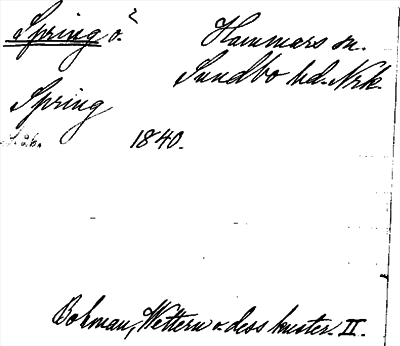 Spring o.?
Hammars sn.
Sundbo hd. Nrk.
Spring
1840.
Bohman, Wettern o. dess kuster. II.